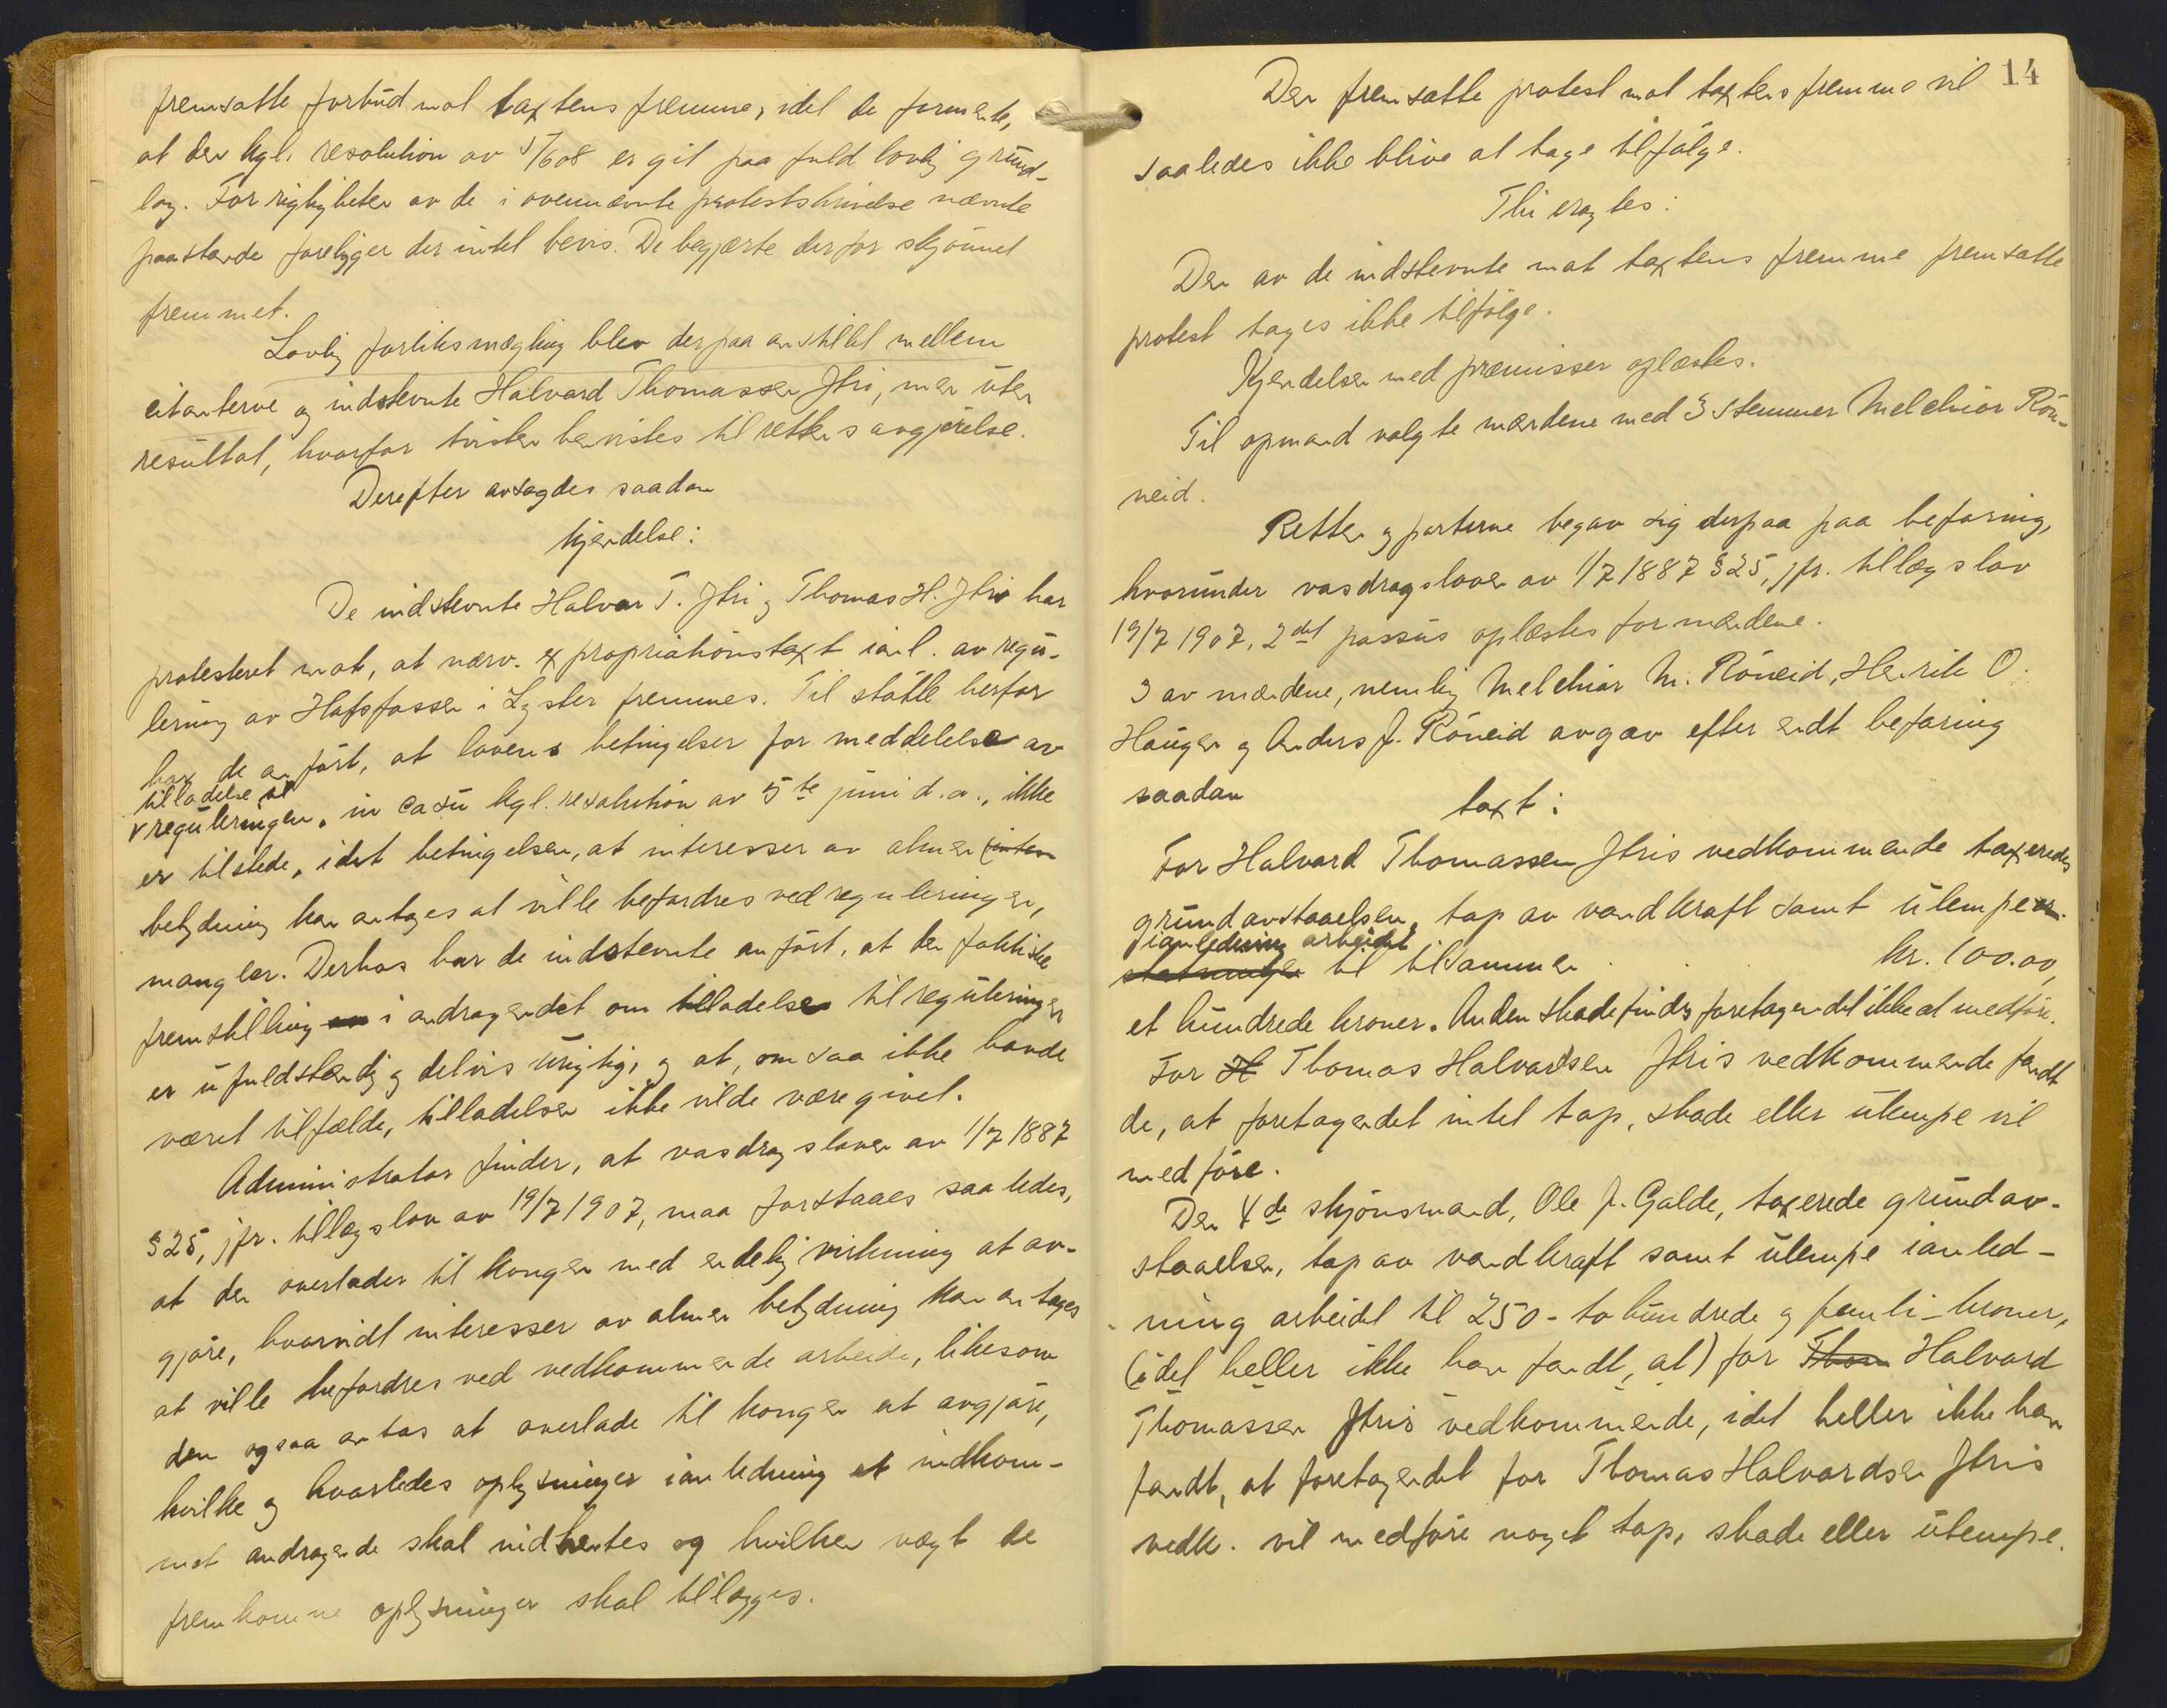 fremsatte forbud mot taxtens fremme, idet de formente,
at den kgl. resolution av 5/6 08 er git paa fuld lovlig grund-
lag. For rigtigheten av de i ovennævnte protestskrivelse nævnte
paastande foreligger der intet bevis. De begjærte derfor skjønnet
fremmet.
Lovlig forliksmægling blev derpaa anstillet mellem
citanterne og indstevnte Halvard Thomassen Ytri, men uten
resultat, hvorfor tvisten henvistes til rettens avgjørelse.
Derefter avsagdes saadan
kjendelse:
De indstevnte Halvar T. Ytri og Thomas H. Ytri har
protesteret mot, at nærv. expropriationstaxt ianl. av regu-
lering av Hafsfossen i Lyster fremmes. Til støtte herfor
har de anført, at lovens betingelser for meddelelse av
tilladelse til
reguleringen, in casu kgl. resolution av 5te juni d.a., ikke
er tilstede, idet betingelsen, at interesser av almen (inten
betydning kan antages at ville befordres ved reguleringen,
mangler. Derhos har de indstevnte anført, at den faktiske
fremstilling i andragendet om tilladelse til reguleringen
er ufuldstændig og delvis urigtig, og at, om saa ikke havde
været tilfælde, tilladelsen ikke vilde være givet.
Administrator finder, at vasdragsloven av 1/7 1887
§ 25, jfr. tillægslov av 19/7 1907, maa forstaaes saaledes,
at den overlader til kongen med endelig virkning at av-
gjøre, hvorvidt interesser av almen betydning kan antages
at ville befordres ved vedkommende arbeide, likesom
den ogsaa antas at overlade til kongen at avgjøre,
hvilke og hvorledes oplysninger ianledning et indkom-
met andragende skal indhentes og hvilken vægt de
fremkomne oplysninger skal tillægges.
14
Den fremsatte protest mot taxtens fremme vil
saaledes ikke blive at tage tilfølge.
Thi eragtes:
Den av de indstevnte mot taxtens fremme fremsatte
protest tages ikke tilfølge.
Kjendelsen med præmisser oplæstes.
Til opmand valgte mændene med 3 stemmer Melchior Røn-
neid.
Retten og parterne begav sig derpaa paa befaring,
hvorunder vasdragsloven av 1/7 1887 § 25, jfr. tillægslov
19/7 1907, 2det passus oplæstes for mændene.
3 av mændene, nemlig Melchior M. Røneid, Henrik O.
Haugen og Anders J. Røneid avgav efter endt befaring
saadan
taxt:
For Halvard Thomassen Ytris vedkommende taxeredes
grundavstaaelsen, tap av vandkraft samt ulempe
ianledning arbeidet
til tilsammen . . kr. 100.00,
et hundrede kroner. Anden skade findes foretagendet ikke at medføre.
For H Thomas Halvardsen Ytris vedkommende fandt
de, at foretagendet intet tap, skade eller ulempe vil
medføre.
Den 4de skjønsmand, Ole J. Galde, taxerede grundav-
staaelsen, tap av vandkraft samt ulempe ianled-
ning arbeidet til 250 - to hundrede og femti - kroner,
(idet heller ikke han fandt, at) for Thom Halvard
Thomassen Ytris vedkommende, idet heller ikke han
fandt, at foretagendet for Thomas Halvardsen Ytris
vedk. vil medføre noget tap, skade eller ulempe.